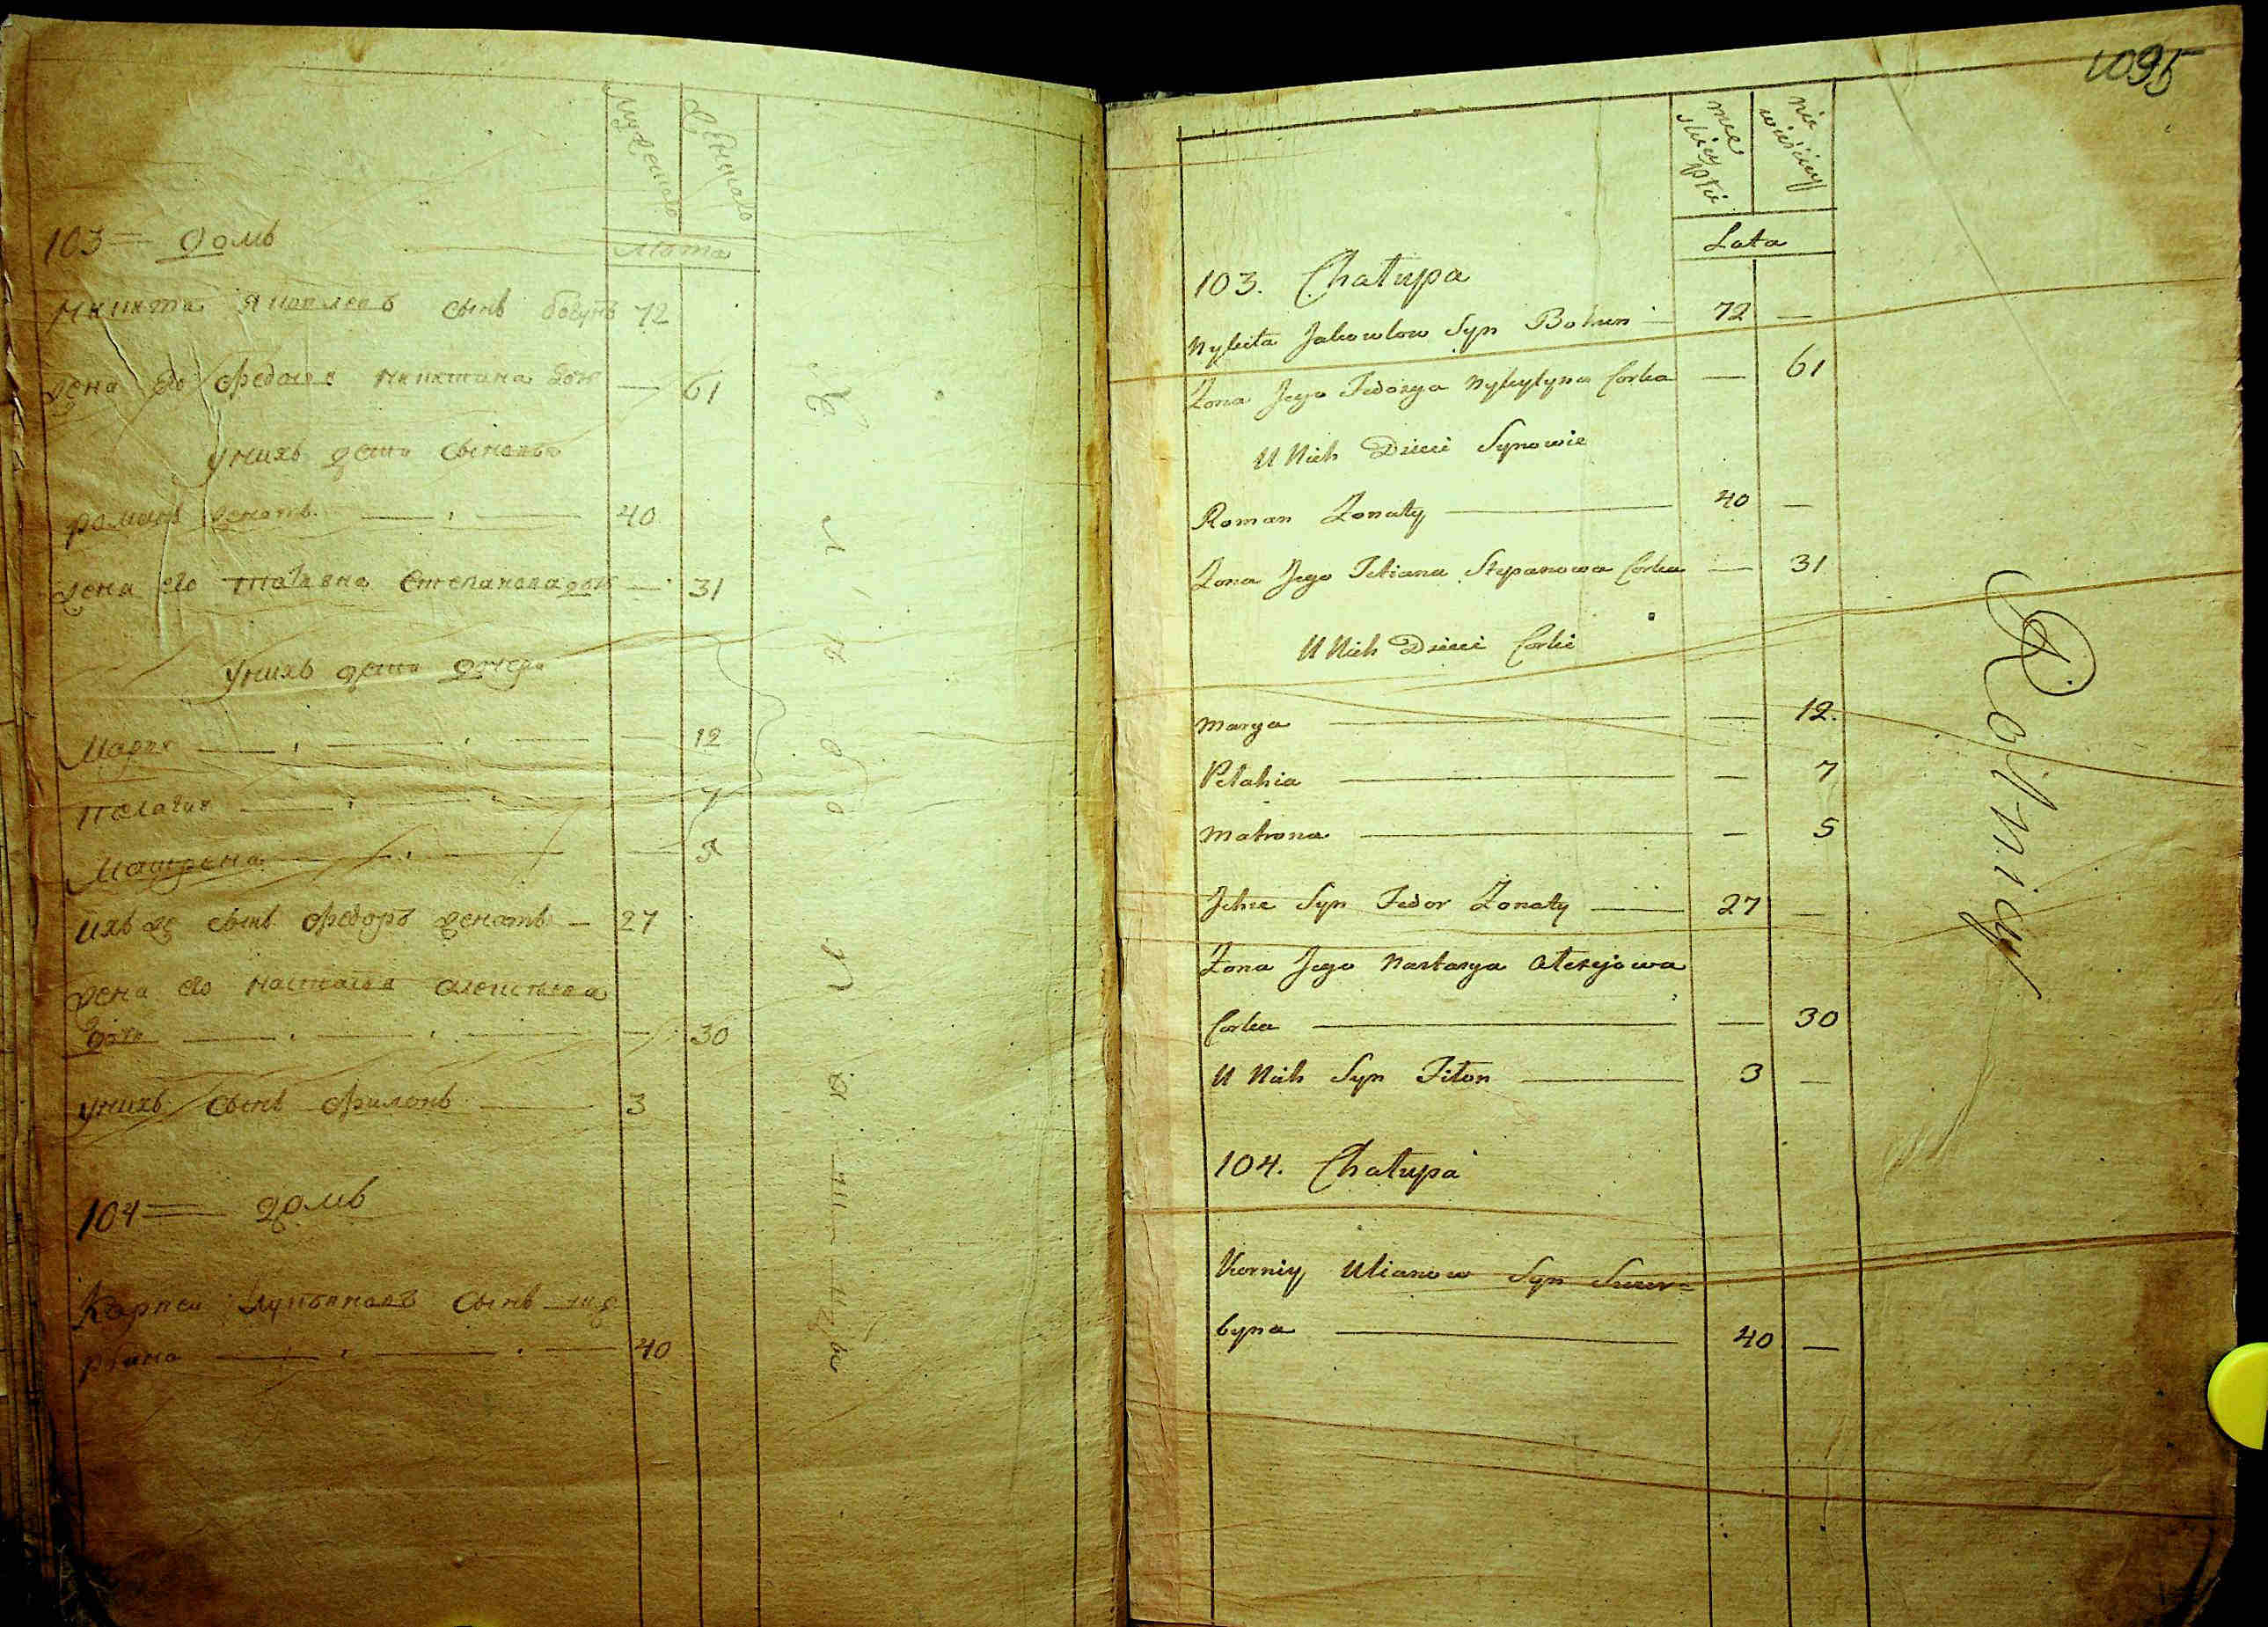 мужеска
женска
лѣта
103 = домъ
Никита Яковлевъ сынъ богунъ 72
жена его Федосия Никитина доч — 61
У нихъ дети сыновья
романъ женатъ — 40
жена его татяна Степанова доч — 31
У нихъ дети дочери
Мария — 12
пелагия — 7
Матрена — 5
ихъ же сынъ Федоръ женатъ — 27
жена его настасия алексеева
дочь — 30
У нихъ сынъ Филонъ — 3
104 = домъ
Корней сынъ
рбина — 40
1095
męskiey płci
niewieściey
Lata
103. Chałupa
Nykita Jakowlow Syn Bohun — 72 —
Żona Jego Fedosya Nykytyna Corka — 61
U Nich Dzieci Synowie
Roman Żonaty — 40 —
Żona Jego Tetiana Stepanowa Corka — 31
U Nich Dzieci Corki
Marya — — 12.
Pelahia — — 7
Matrona — — 5
Jchże Syn Fedor Żonaty — 27 —
Żona Jego Nastasya Alexejowa
Corka — — 30
U Nich Syn Filon — 3 —
104. Chałupa
Korniy Ulianow Syn Szczer=
byna — 40 —
Rolniy